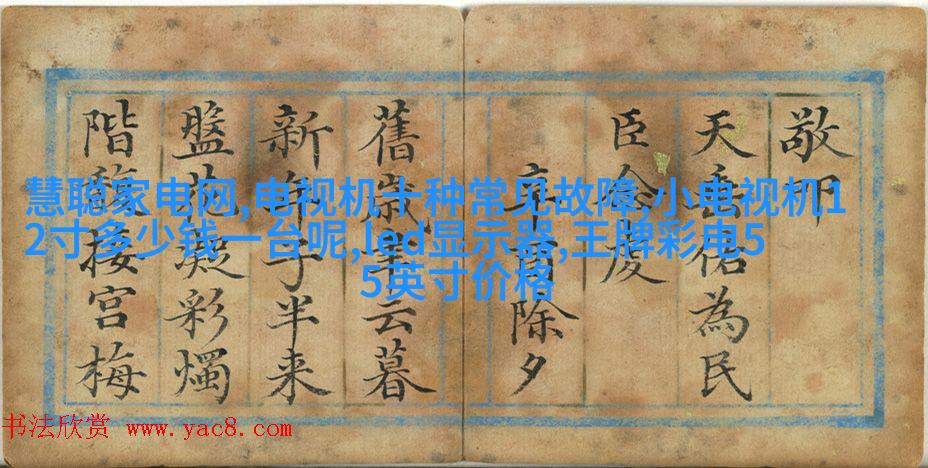 慧聪家电网,电视机十种常见故障,小电视机1
2寸多少钱一台呢,led显示器,王牌彩电5
5英寸价格
敬叩
天佑為民
臣
除夕
舊歲云暮
新年子半来
盤花凝彩燭
階接宮梅
书法欣赏 www.yac8.com